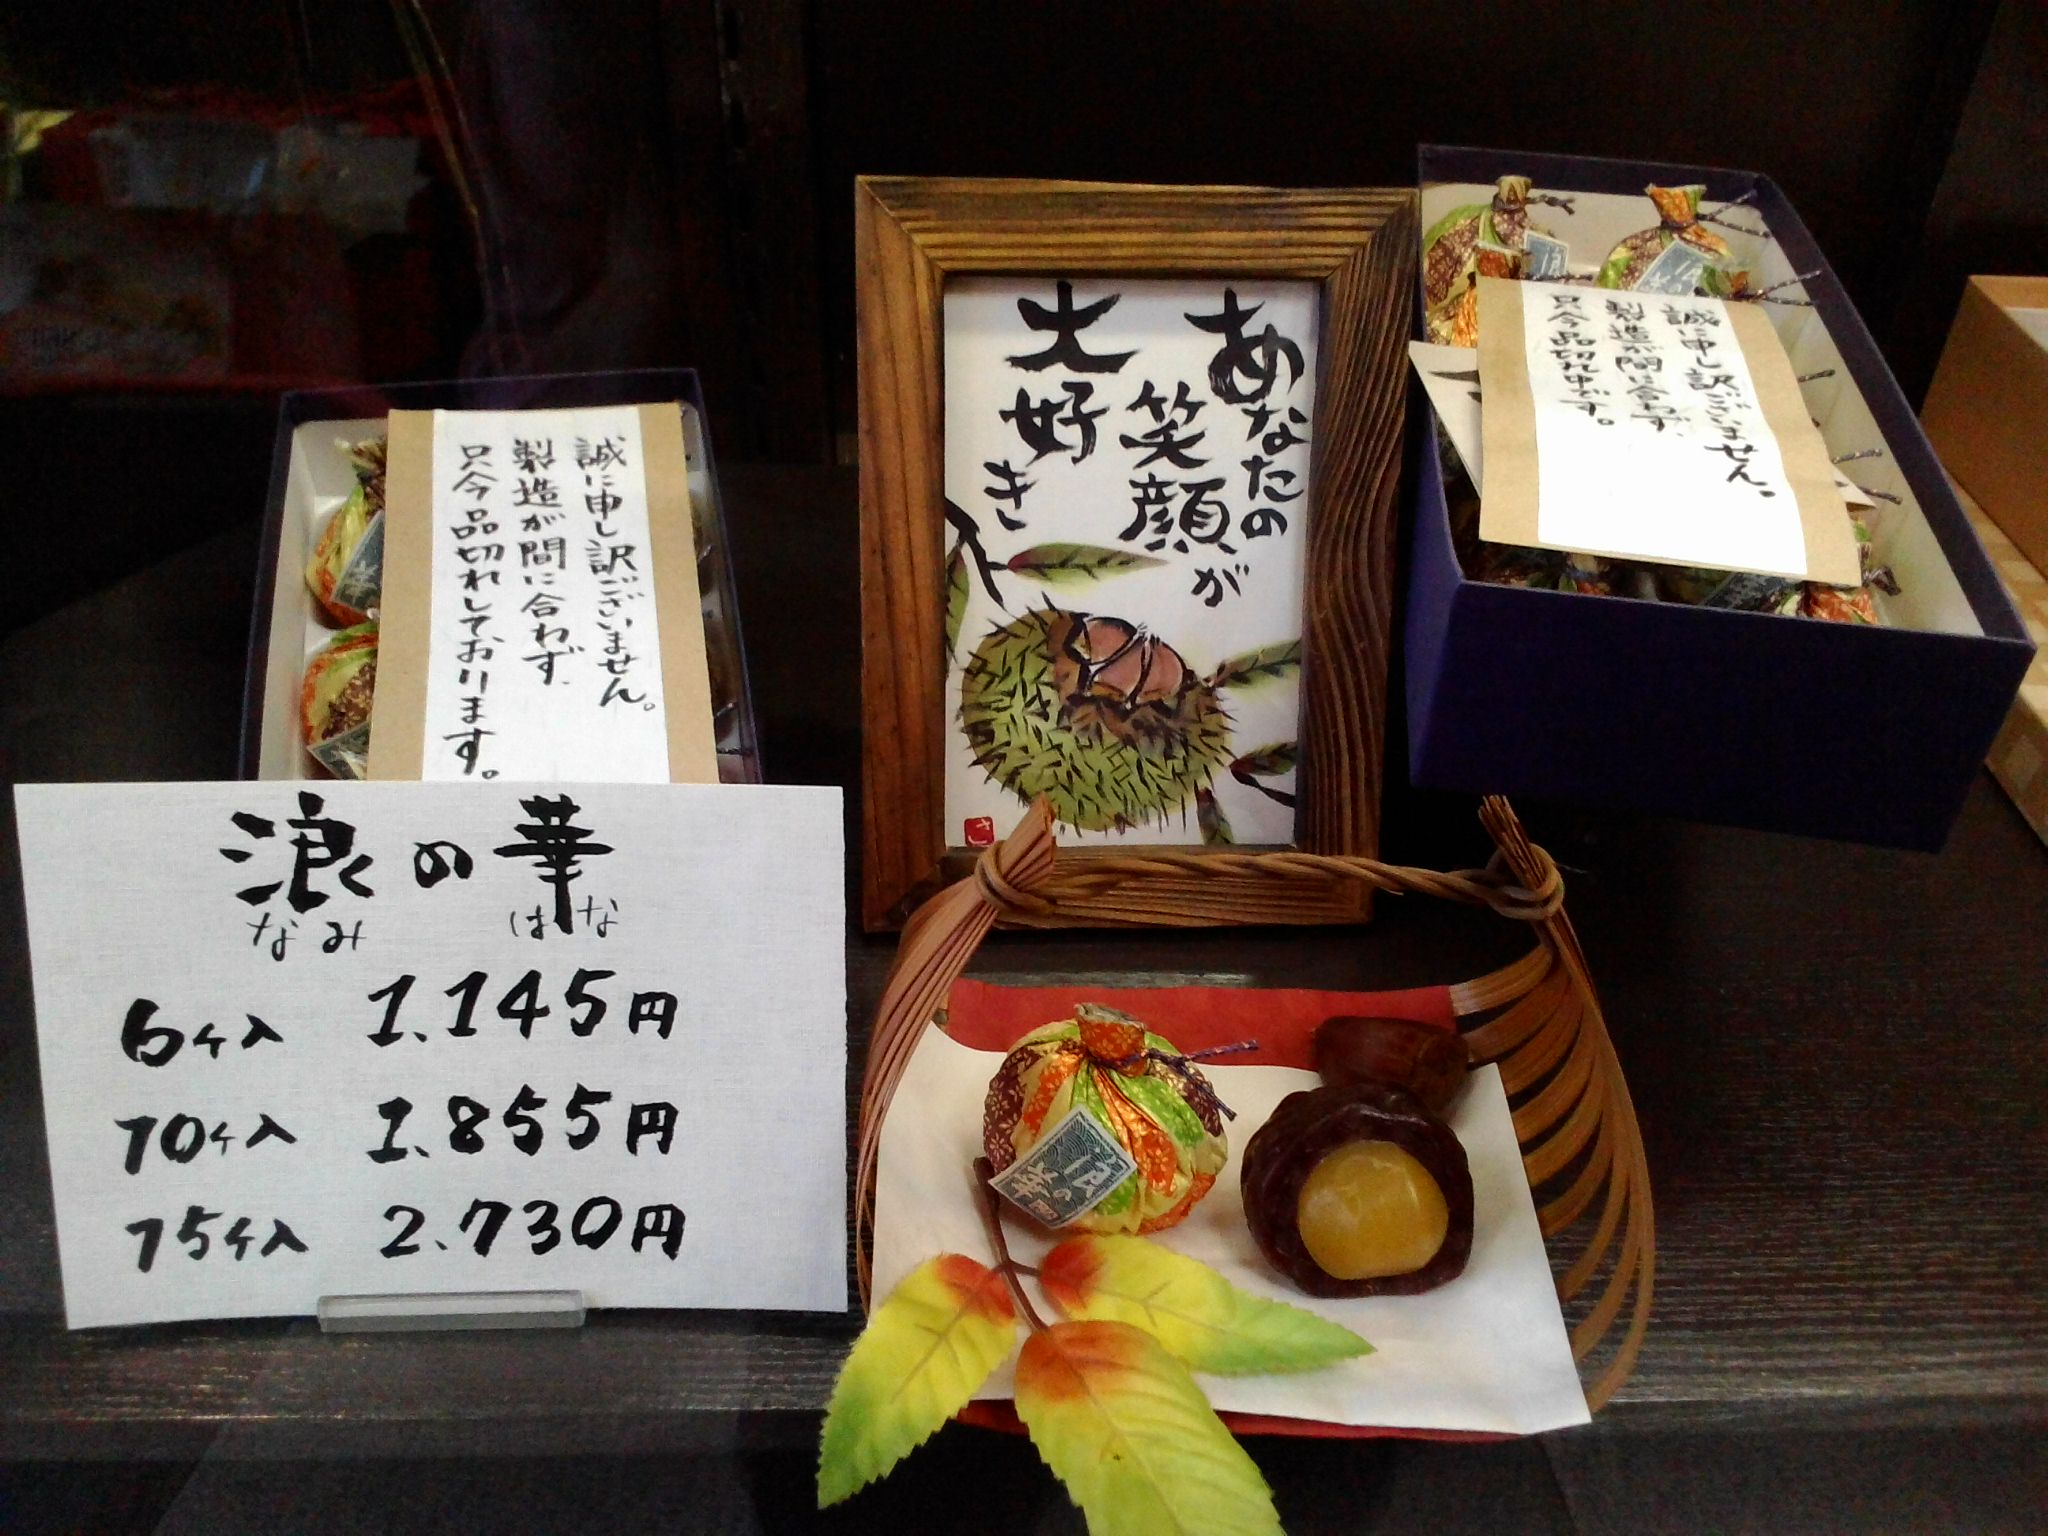 誠に申し訳ございません。
製造が間に合わず、
只今品切れしております。
浪の華
なみ はな
6ヶ入 1.145円
10ヶ入 1.855円
15ヶ入 2.730円
あなたの
笑顔が
大好き
さ
誠に申し訳ございません。
製造が間に合わず、
只今品切れ中です。
浪の華